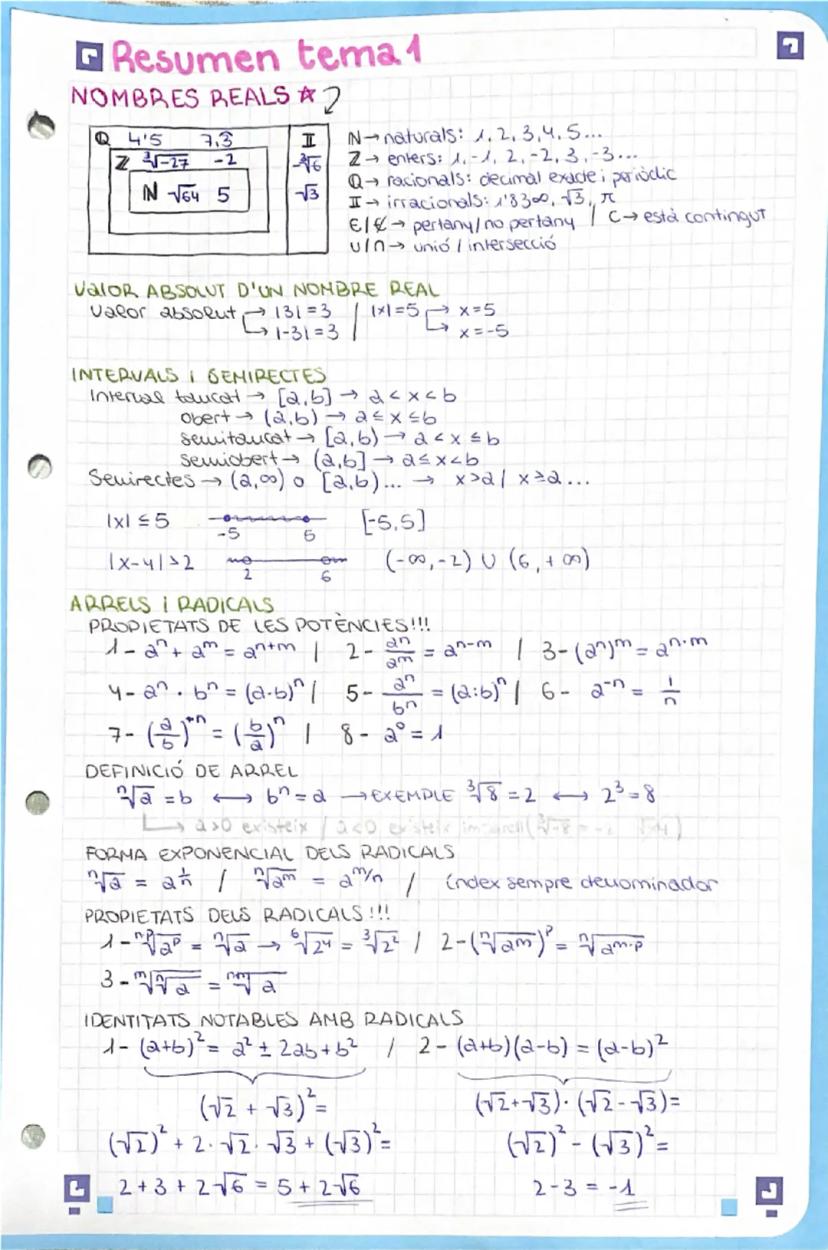 Resumen tema 1
NOMBRES REALS ☆
Q 4'5 7,3̂ II
Z ∛-27 -2 -∛6
N √64 5 √3
N → naturals: 1, 2, 3, 4, 5...
Z → enters: 1, -1, 2, -2, 3, -3...
Q → racionals: decimal exacte i periòdic
II → irracionals: 1'83∞, √3, π
∈/∉ → pertany/no pertany / ⊂ → està contingut
∪/∩ → unió / intersecció
VALOR ABSOLUT D'UN NOMBRE REAL
Valor absolut → |3| = 3 / |x| = 5 → x = 5
↳ |-3| = 3 ↳ x = -5
INTERVALS I SEMIRECTES
Interval tancat → [a,b] → a < x < b
obert → (a,b) → a ≤ x ≤ b
semitancat → [a,b) → a < x ≤ b
semiobert → (a,b] → a ≤ x < b
Semirectes → (a,∞) o [a,b)... → x>a / x≥a...
|x| ≤ 5 -5 5 [-5,5]
|x-4| > 2 2 6 (-∞,-2) ∪ (6,+∞)
ARRELS I RADICALS
PROPIETATS DE LES POTÈNCIES!!!
1- aⁿ + aᵐ = aⁿ⁺ᵐ | 2- aⁿ/aᵐ = aⁿ⁻ᵐ | 3- (aⁿ)ᵐ = aⁿ·ᵐ
4- aⁿ · bⁿ = (a·b)ⁿ | 5- aⁿ/bⁿ = (a:b)ⁿ | 6- a⁻ⁿ = 1/n
7- (a/b)⁻ⁿ = (b/a)ⁿ | 8- a⁰ = 1
DEFINICIÓ DE ARREL
ⁿ√a = b ⟷ bⁿ = a → EXEMPLE ³√8 = 2 ⟷ 2³ = 8
↳ a>0 existeix / a<0 existeix
FORMA EXPONENCIAL DELS RADICALS
ⁿ√a = a^(1/n) / ⁿ√aᵐ = a^(m/n) / índex sempre denominador
PROPIETATS DELS RADICALS!!!
1- ⁿ·ᵖ√aᵖ = ⁿ√a → ⁶√2⁴ = ³√2² / 2- (ⁿ√aᵐ)ᵖ = ⁿ√aᵐ·ᵖ
3- ᵐ√ⁿ√a = ⁿ·ᵐ√a
IDENTITATS NOTABLES AMB RADICALS
1- (a±b)² = a² ± 2ab + b² / 2- (a+b)(a-b) = (a-b)²
(√2 + √3)² = (√2+√3)·(√2-√3) =
(√2)² + 2·√2·√3 + (√3)² = (√2)² - (√3)² =
2 + 3 + 2√6 = 5 + 2√6 2-3 = -1